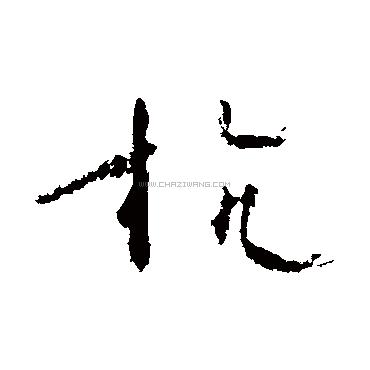 杭
WWW.CHAZIWANG.COM